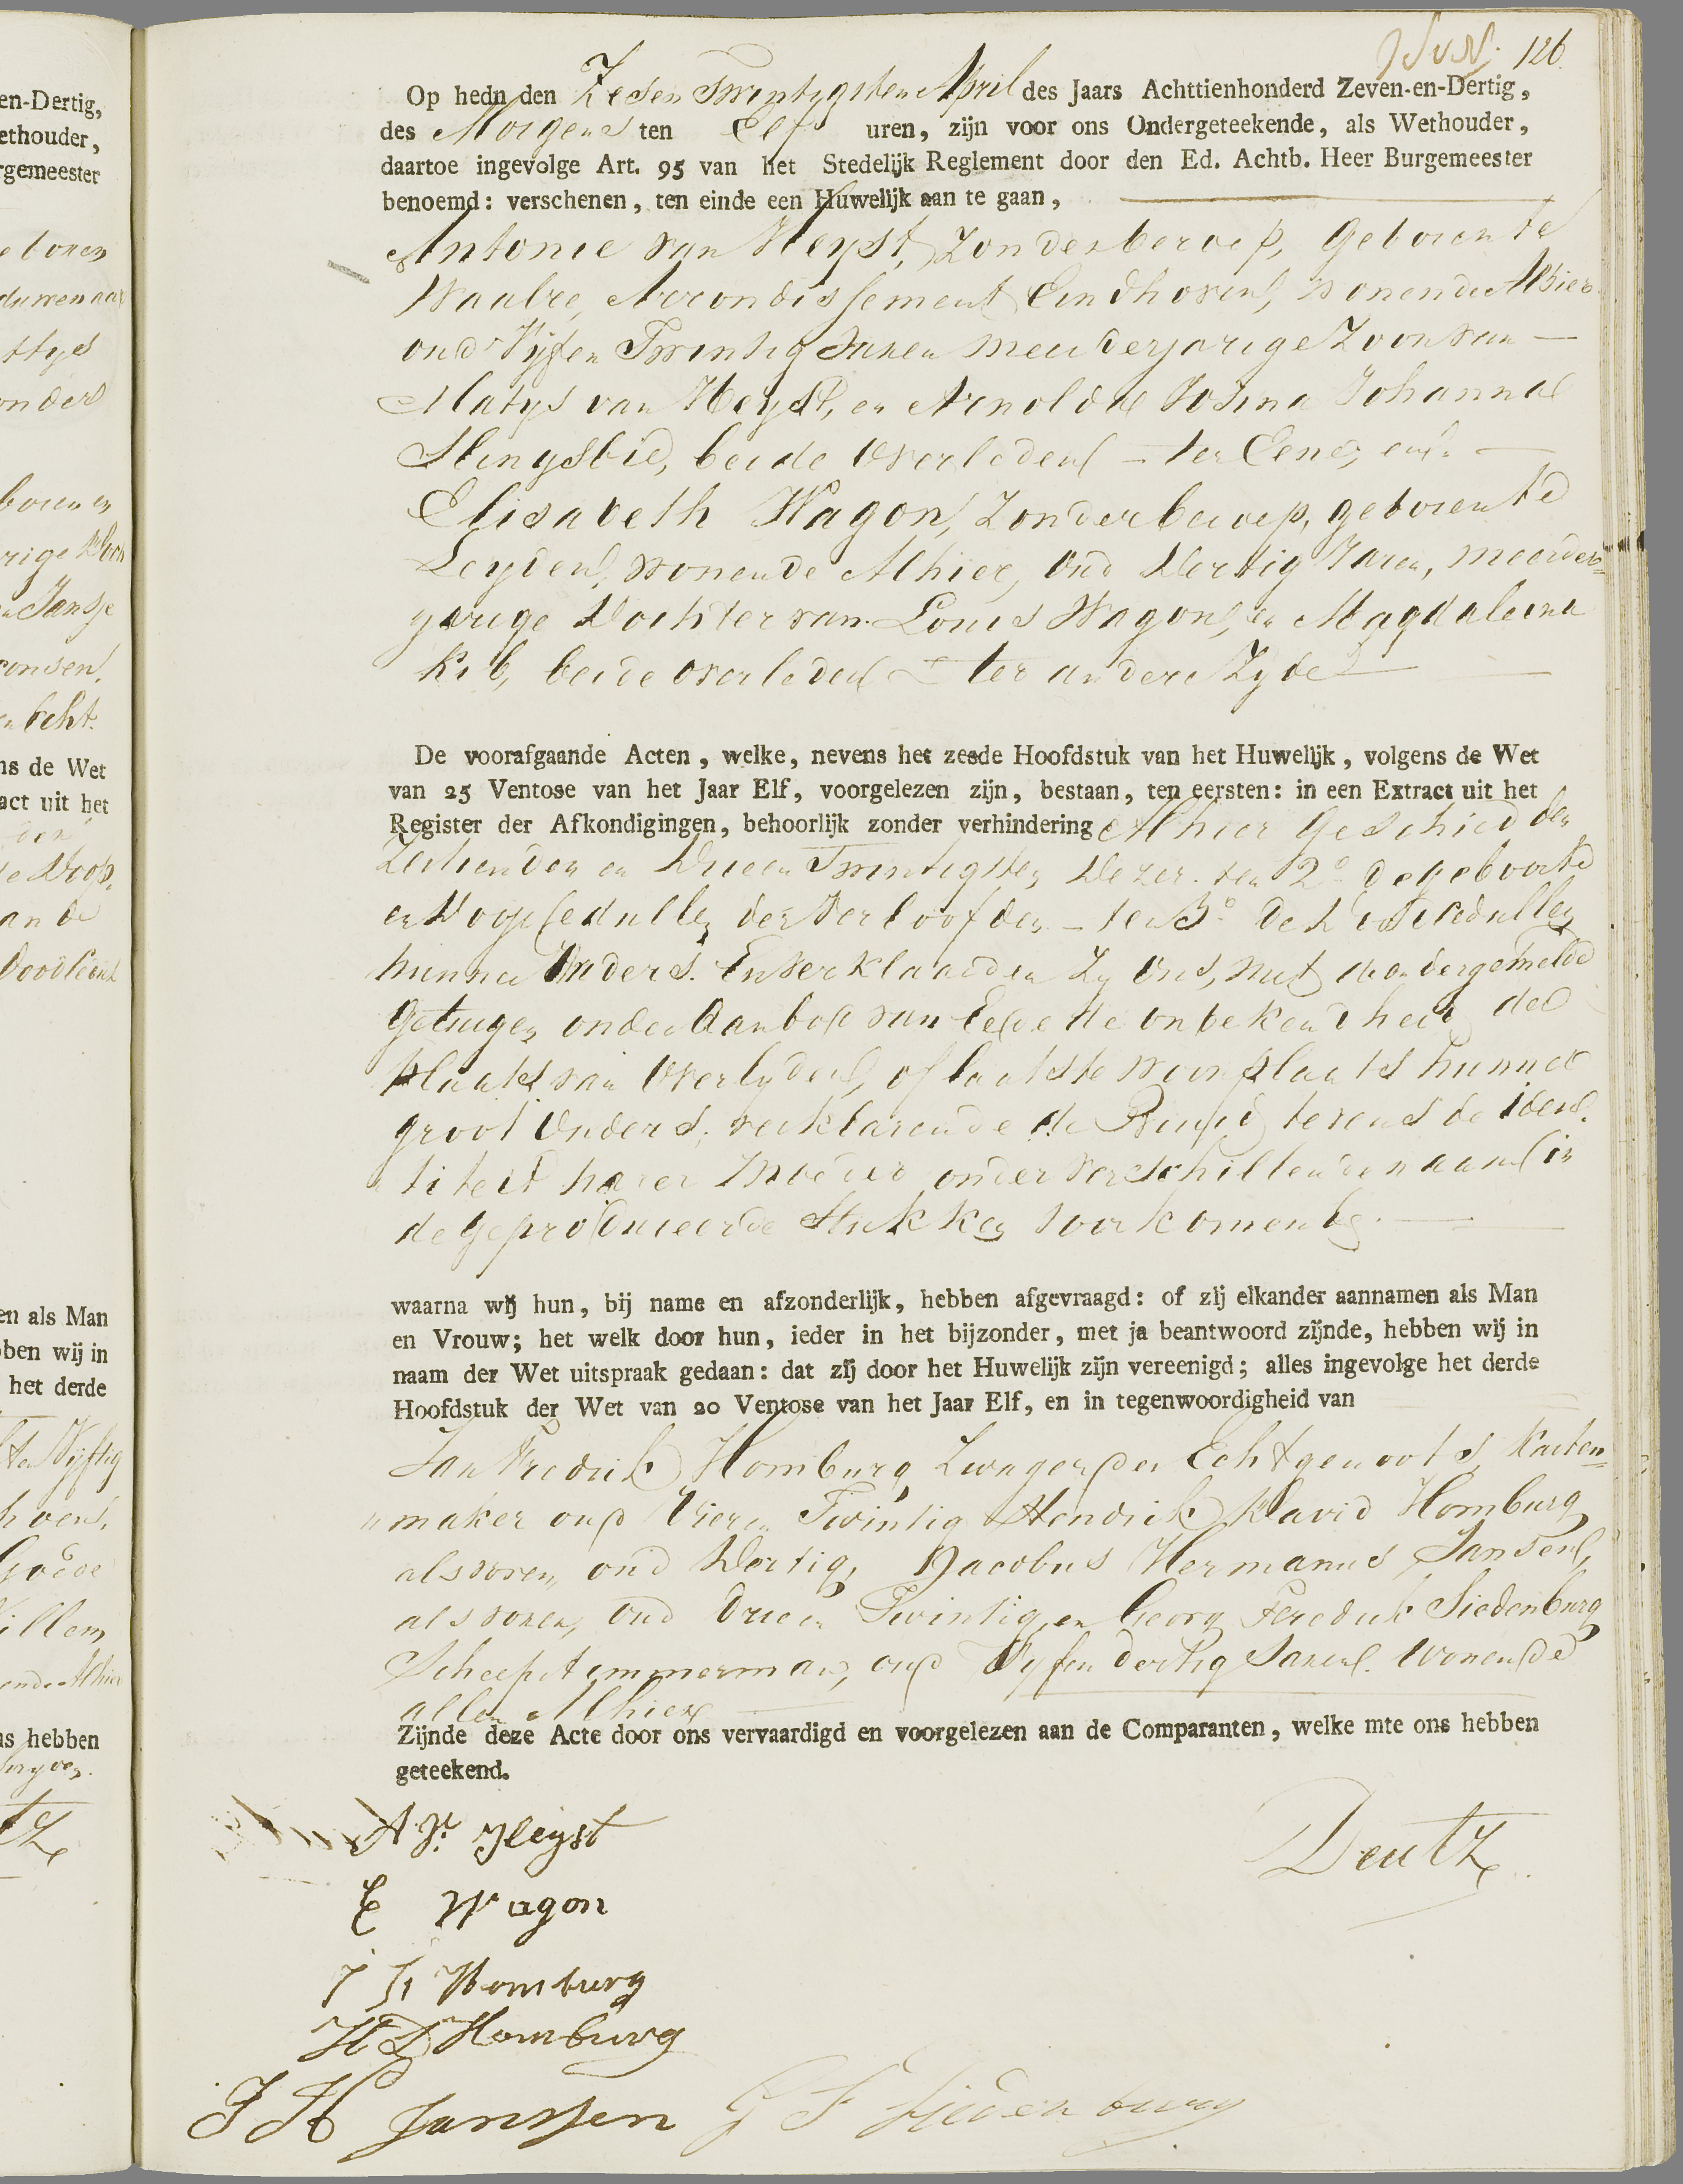 126
Op hedn den Zesen Twintigsten April des Jaars Achttienhonderd Zeven-en-Dertig,
des Morgens ten Elf uren, zijn voor ons Ondergeteekende, als Wethouder,
daartoe ingevolge Art. 95 van het Stedelijk Reglement door den Ed. Achtb. Heer Burgemeester
benoemd: verschenen, ten einde een Huwelijk aan te gaan,
Antonie van Heyst, Zonder beroep, geboren te
Waalre, Arrondissement Eindhoven, wonende Alhier
oud Vijfen Twintig Jaren meerderjarige Zoon van
Matys van Heyst, en Arnolda Josina Johanna
Slingsbie, beide Overleden - ter Eene, en
Elisabeth Wagon, Zonder beroep, geboren te
Leyden, wonende Alhier, Oud Dertig Jaren, meerder=
jarige Dochter van Louis Wagon, en Magdalena
Kib, beide overleden - ter andere Zyde
De voorafgaande Acten, welke, nevens het zesde Hoofdstuk van het Huwelijk, volgens de Wet
van 25 Ventose van het Jaar Elf, voorgelezen zijn, bestaan, ten eersten: in een Extract uit het
Register der Afkondigingen, behoorlijk zonder verhindering Alhier Geschied den
Zestienden en Drieen Twintigsten dezer. ten 2º de geboorte
en Doop Cedullen der Verloofden - ten 3º De Dood Cedullen
hunner Ouders. En verklaarden Zy Ons, met de ondergemelde
Getuigen onder Aanbod van Eede de onbekendheid der
plaats van Overlyden, of laatste woonplaats hunner
groot Ouders, verklarende de Bruid tevens de iden=
titeit harer Moeder onder verschillende naam in
de geproduceerde Stukken voorkomende.
waarna wij hun, bij name en afzonderlijk, hebben afgevraagd: of zij elkander aannamen als Man
en Vrouw; het welk door hun, ieder in het bijzonder, met ja beantwoord zijnde, hebben wij in
naam der Wet uitspraak gedaan: dat zij door het Huwelijk zijn vereenigd; alles ingevolge het derde
Hoofdstuk der Wet van 20 Ventose van het Jaar Elf, en in tegenwoordigheid van
Jan Fredrik Homburg Zwager der Echtgenoote, Kasten=
maker oud Vieren Twintig Hendrik David Homburg
als voren, oud Dertig, Jacobus Hermanus Jansen,
als voren, oud Drieen Twintig, en Georg Feredrik Siedenburg
Scheepstimmerman, oud Vyfen dertig Jaren. Wonende
allen Alhier
Zijnde deze Acte door ons vervaardigd en voorgelezen aan de Comparanten, welke mte ons hebben
geteekend.
A V: Heijst
Deutz
E Wagon
J F Homburg
H D Homburg
J H Janssen G F Siedenburg